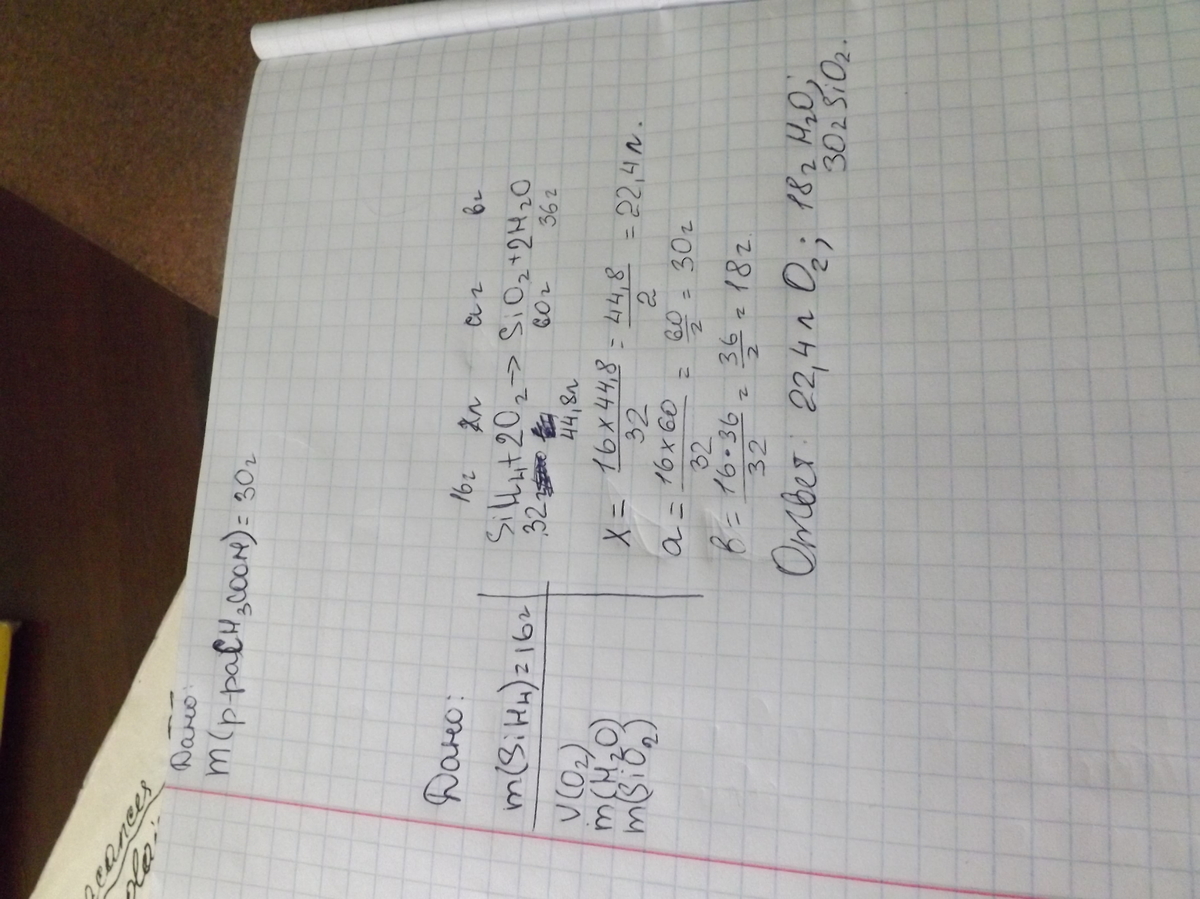 Дано:
m(р-раCH₃COOH)=30г
Дано:
m(SiH₄)=16г
V(O₂)
m(H₂O)
m(SiO₂)
16г xл aг вг
SiH₄+2O₂→SiO₂+2H₂O
32г 44,8л 60г 36г
x = 16×44,8/32 = 44,8/2 = 22,4л.
a = 16×60/32 = 60/2 = 30г
в = 16·36/32 = 36/2 = 18г.
Ответ: 22,4л O₂; 18г H₂O;
30г SiO₂.